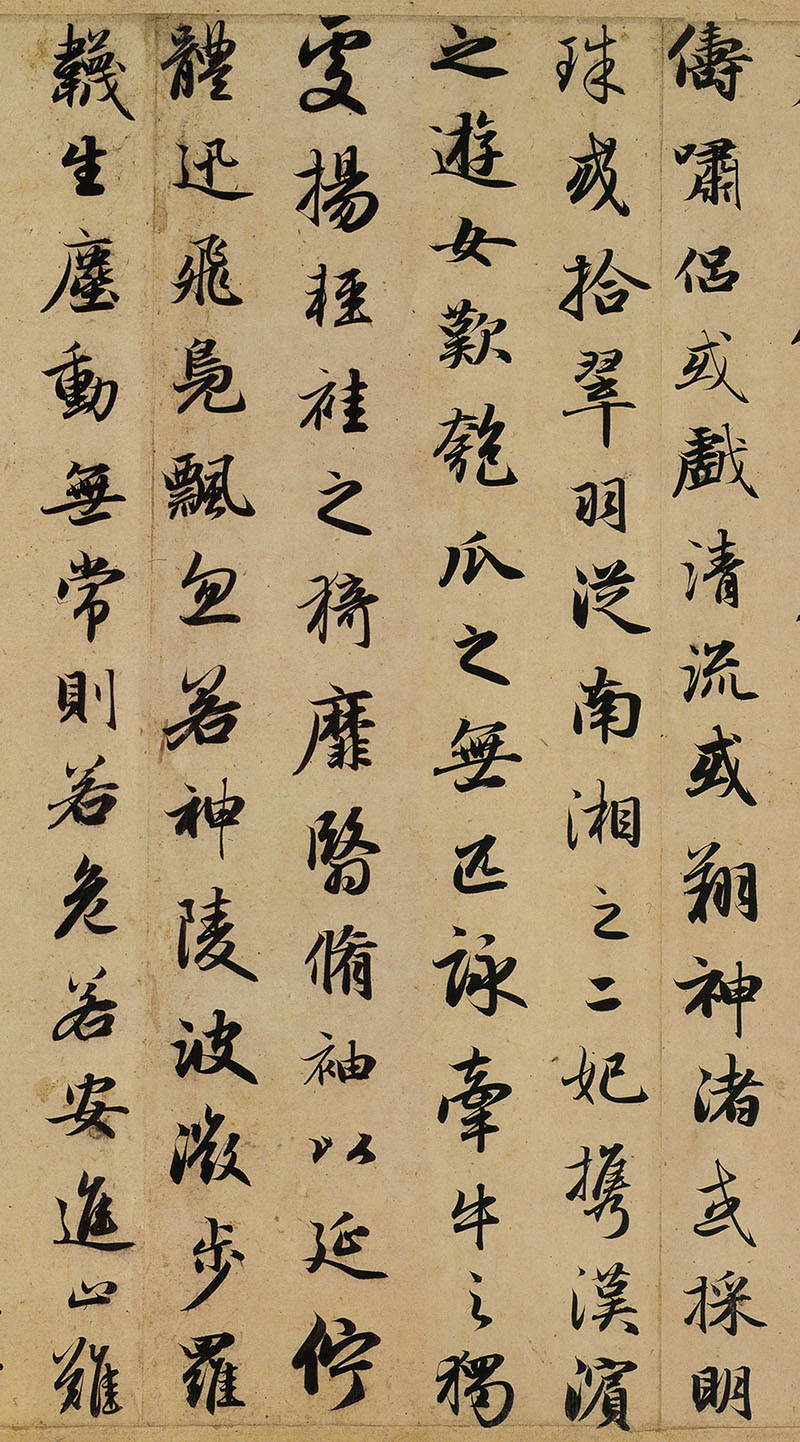 儔嘯侶或戲清流或翔神渚或採明
珠或拾翠羽從南湘之二妃携漢濱
之遊女歎匏瓜之無匹詠牽牛之獨
處揚輕袿之猗靡翳脩袖以延佇
體迅飛鳧飄忽若神陵波微步羅
韈生塵動無常則若危若安進止難